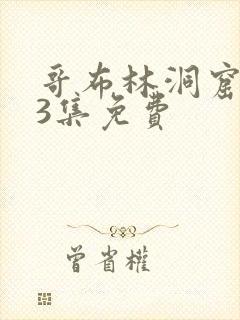 哥布林洞窟
3集免費
曾省權